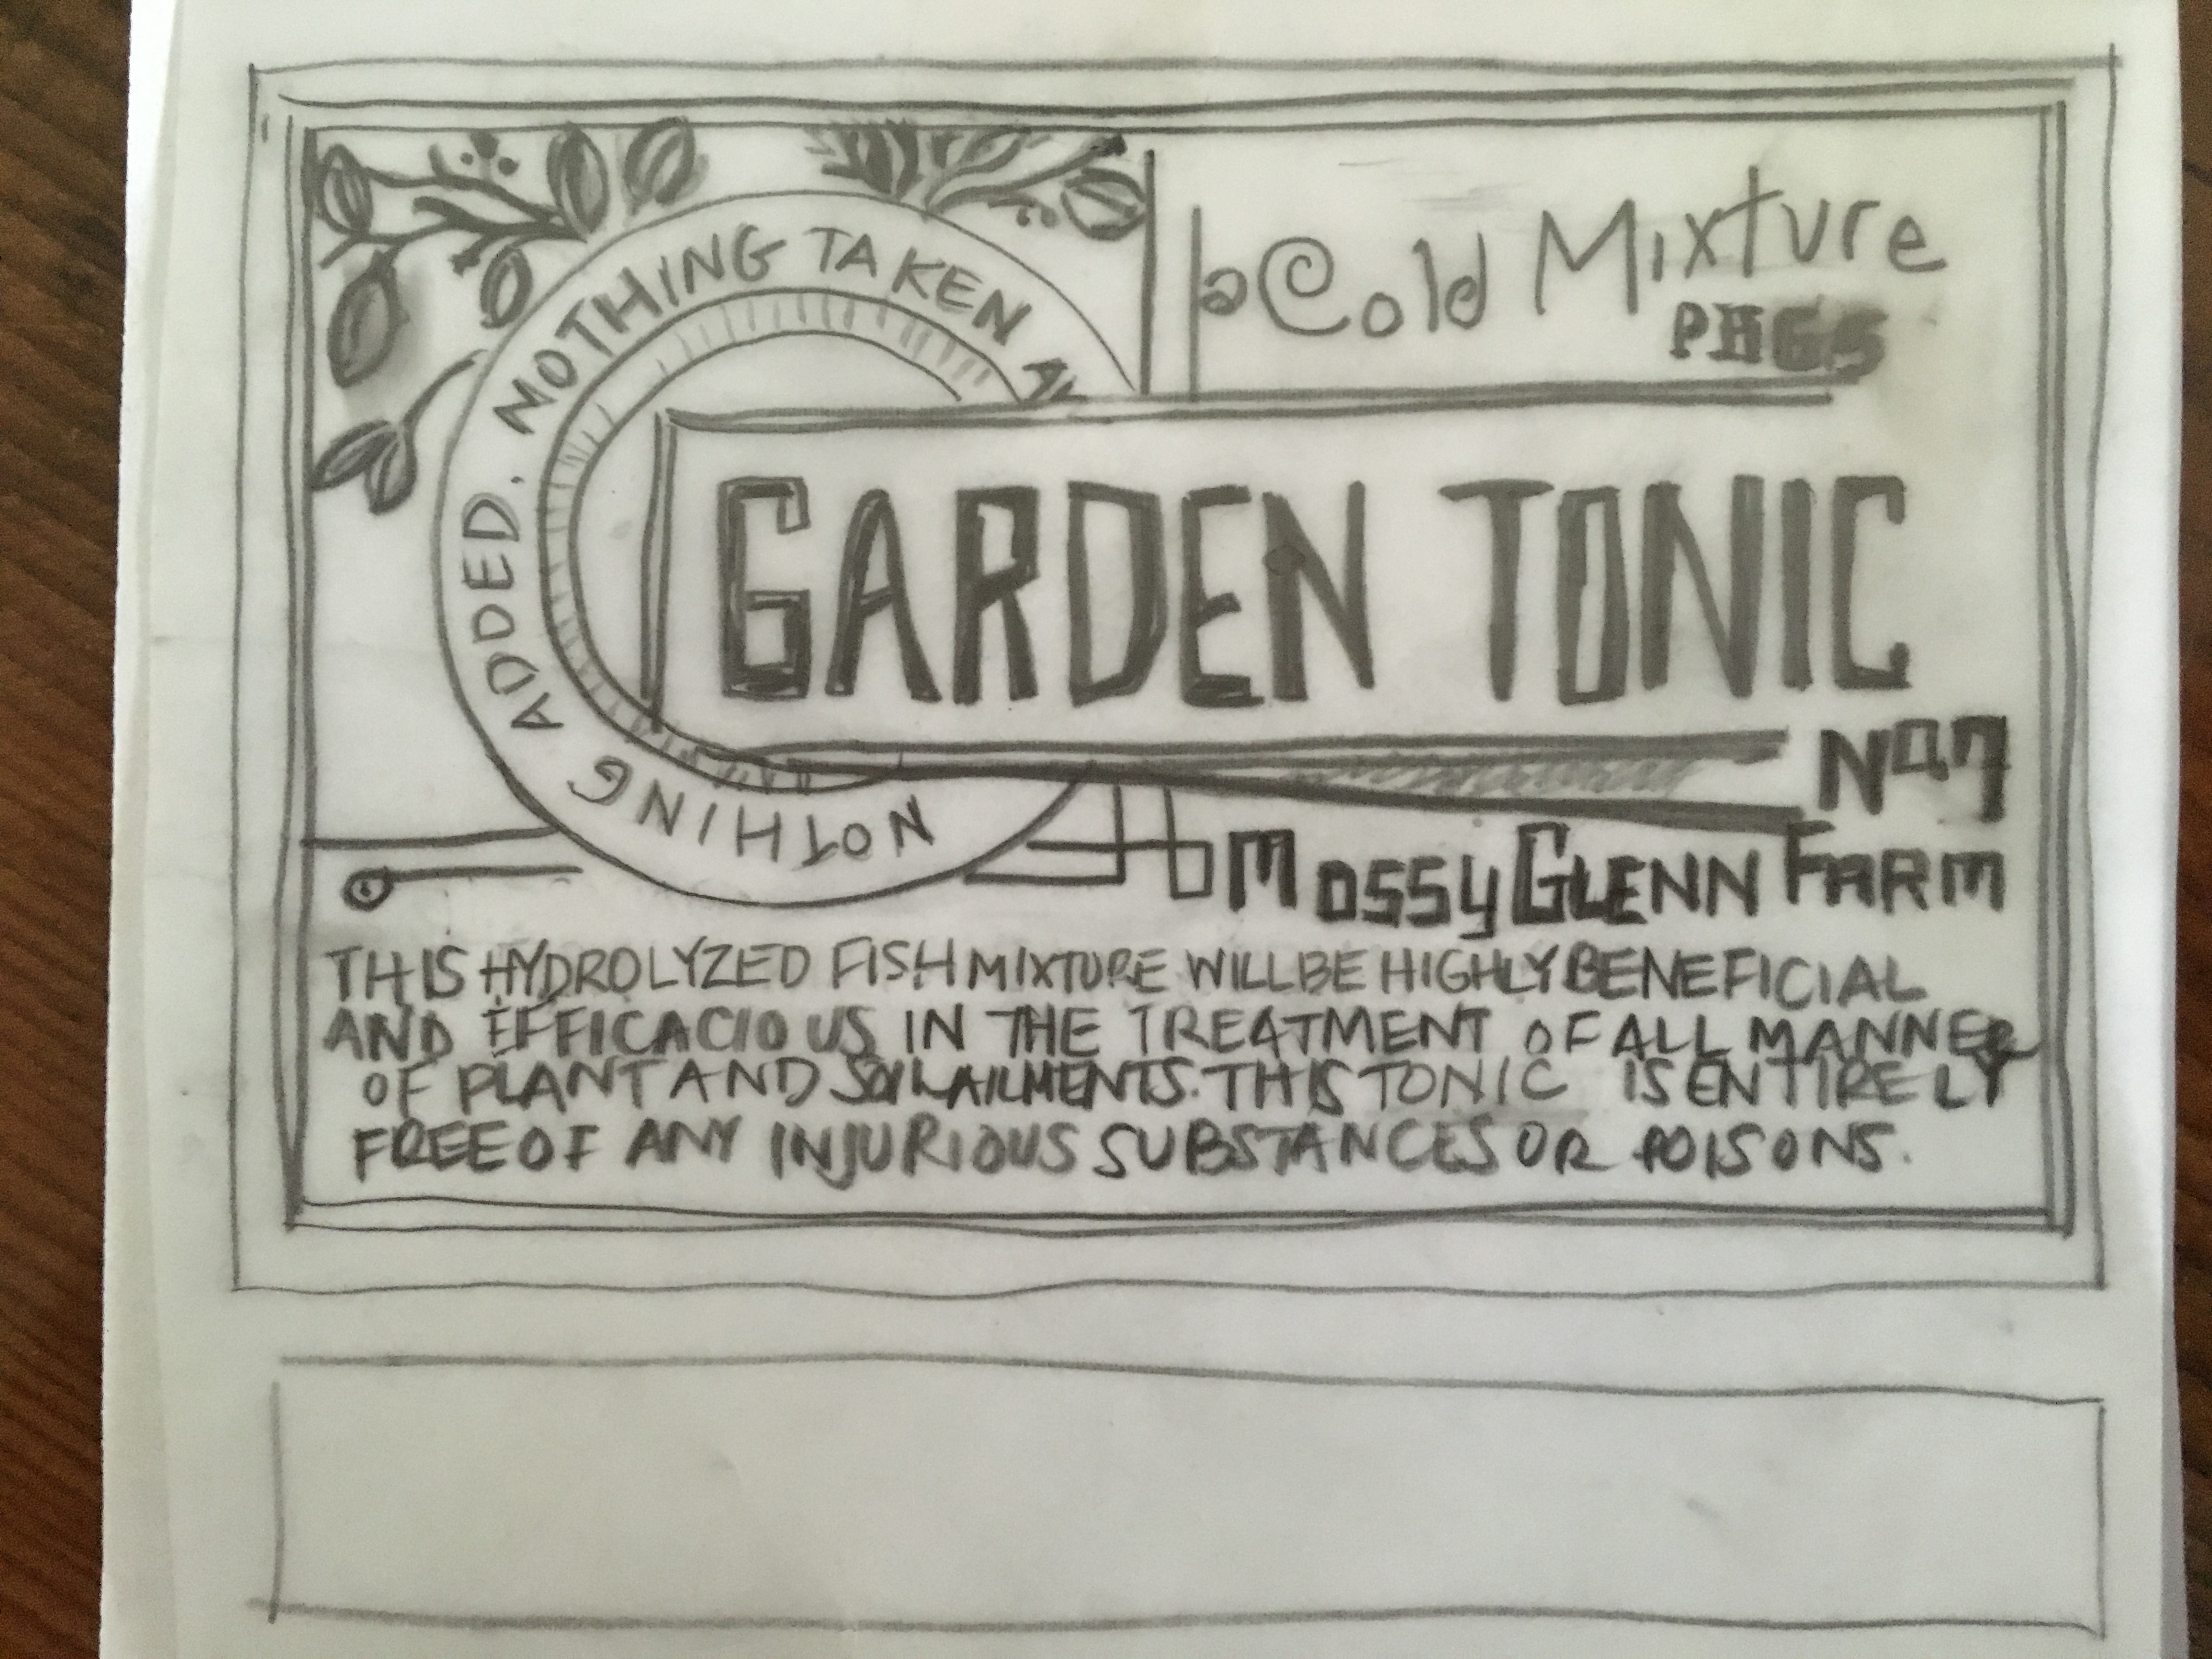 NOTHING ADDED. NOTHING TAKEN
Cold Mixture
GARDEN TONIC
No 7
MOSSY GLENN FARM
THIS HYDROLYZED FISH MIXTURE WILL BE HIGHLY BENEFICIAL
AND EFFICACIOUS IN THE TREATMENT OF ALL MANNER
OF PLANT AND SOIL AILMENTS. THIS TONIC IS ENTIRELY
FREE OF ANY INJURIOUS SUBSTANCES OR POISONS.